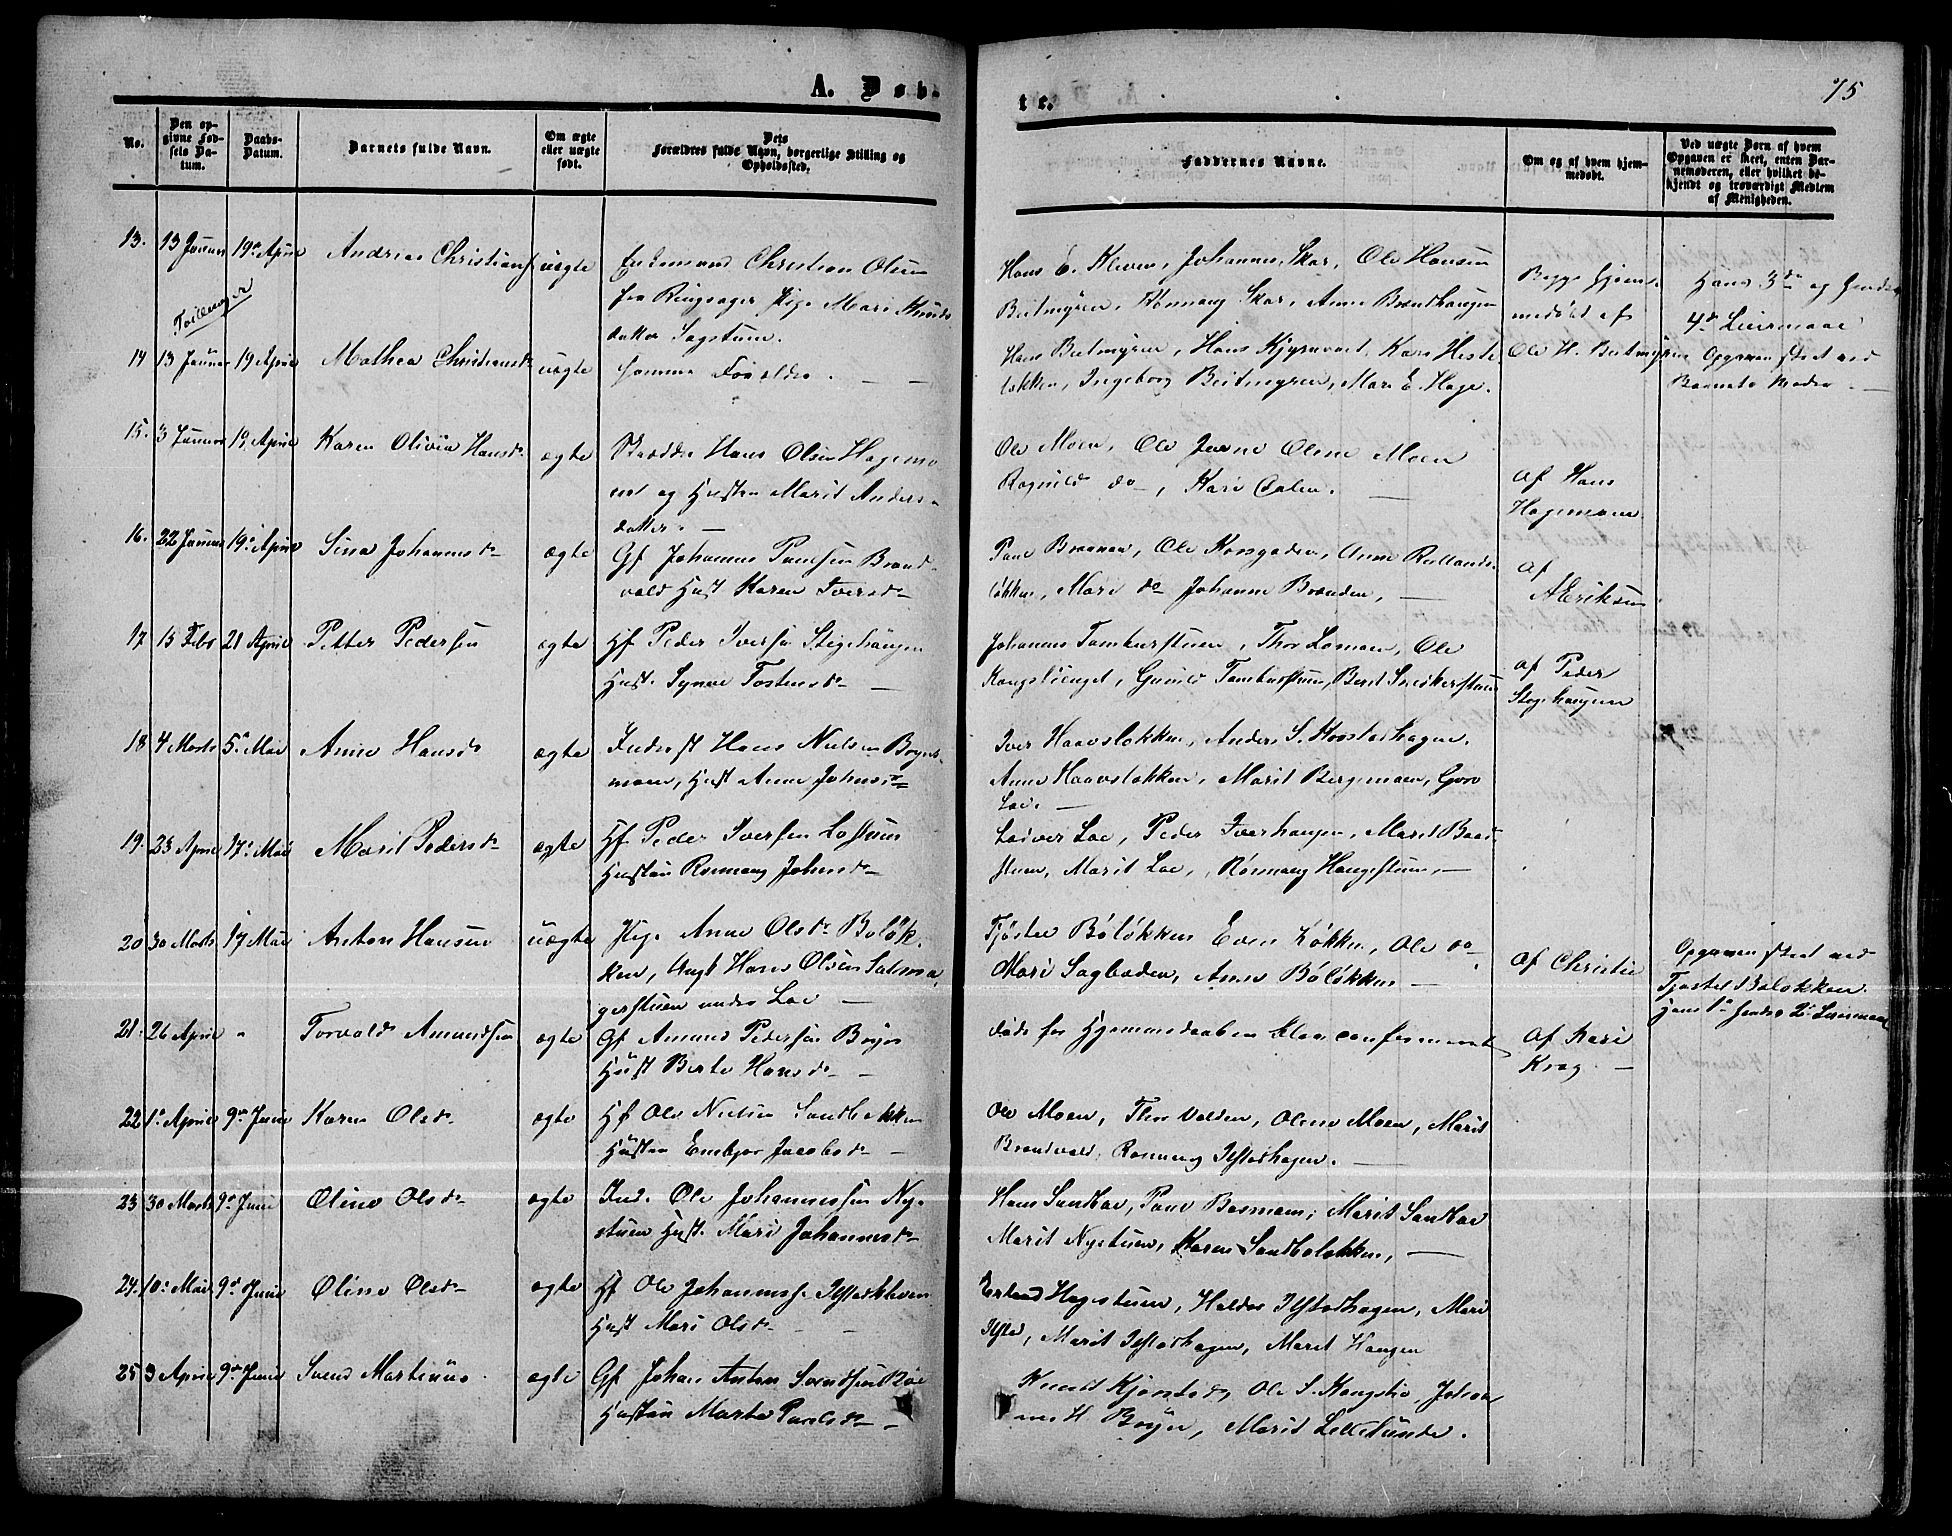 A. Døb-
te.
75
No.
Den op-
givne Fød-
sels Da-
tum.
Daabs-
Datum.
Barnets fulde Navn.
Om ægte
eller uægte
født.
Dets
Forældres fulde Navn, borgerlige Stilling og
Opholdssted.
Faddernes Navne.
Om og af hvem hjem-
medøbt.
Ved uægte Børn af hvem
Opgaven er skeet, enten Bar-
nemoderen, eller hvilket be-
kjendt og troværdigt Medlem
af Menigheden.
13. 13 Januar 19de April Andreas Christians uægte Enkemand Christian Olsen
fra Ringsager Pige Mari Knuds
datter Sagstuen.
Hans E. Kleven, Johannes Skar, Ole Hansen
Beitmyren, Rønnaug Skar, Anne Brændhaugen
Begge hjem-
medøbt af
Ole H. Beitmyren
Hans 3die og hendes
4de Leiermaal
Opgaven skeet ved
Barnets Moder. —
Tvillinger
14 13 Januar 19 April Mathea Christiansdr uægte samme Forældre. — —
Hans Beitmyren, Hans Kjernaaet, Kari Heste
løkken, Ingeborg Beitmyren, Mari E. Hage.
15. 3 Januar 19 April Karen Olivia Hansdr ægte Skrædder Hans Olsen Hagemo
en og Hustru Marit Anders-
datter. —
Ole Moen, Ole Olene Moen
Ragnild do —, Kari
af Hans
Hagemoen
16. 22 Januar 19de April Sina Johannesdr ægte Gf Johannes Paulsen Brand-
vold Hust Karen Iversdr
Paul Braanen, Ole Korsgaden, Anne Rullands-
løkken, Mari do Johanne Brænden, —
af
A Eriksen
17. 15 Febr 21 April Petter Pedersen ægte Hf Peder Iversen Stigehaugen
Hust. Synne Tostensdr —
Johannes Tamburstuen, Thor Lomoen, Ole
Kongslienget, Gunild Tamburstuen, Berit Snedkerstuen
af Peder
Stigehaugen
18 4 Marts 5te Mai Anne Hansdr ægte Inderst Hans Nielsen Bryns-
moen, Hust Anne Johnsdr
Iver Haavsløkken, Anders S. Korstadhagen,
Anne Haavsløkken, Marit Bergemoen, Guro
Loe. —
19. 23 April 17de Mai Marit Pedersdr ægte Hf Peder Iversen Lostuen
Hustru Rønnaug Johnsdr
Loe, Peder Iverhaugen, Marit Baad-
stuen, Marit Loe, Rønnaug Haugestuen, —
20 30 Marts 17 Mai Anton Hansen uægte Pige Anne Olsdr Bøløk-
ken, Ungk Hans Olsen Salma
gerstuen under Loe —
Tjøstel Bøløkken Even Løkken, Ole do
Mari Sagbaden, Anne Bøløkken —
af Christie
Opgaven skeet ved
Tjøstel Bøløkken.
Hans 1ste hendes 2det Leiermaal
21. 26 April " Torvald Amundsen ægte Gf Amund Pedersen Brujer
Hust Berte Hansdr —
døde før Hjemmedaaben blev confirmeret
af Kari
Krog —
22 1ste April 9de Juni Karen Olsdr ægte Hf Ole Nielsen Sandbakken
Hustru Embjør Jacobsdr —
Ole Moen, Thor Volden, Olene Moen, Marit
Brandvold, Rønnaug Ilstadhagen. —
23 30 Marts 9de Juni Oline Olsdr ægte Ind. Ole Johannessen Ny-
stuen Hust. Mari Johannesdr
Hans Sandboe, Paul Bosmoen, Marit Sandboe
Marit Nystuen, Karen Sandboløkken, —
24. 10de Mai 9de Juni Oline Olsdr ægte Hf Ole Johannesse Ilstadkleven
Hust Mari Olsdr — —
Erland Hagestuen, Haldor Ilstadhagen, Mari
Ilstad, Marit Ilstadhagen, Marit Haugen
25 3 April 9de Juni Svend Martinus ægte Gf Johan Anton Svendsen Bøe
Hustru Marte Paulsdr —
Knud Kjørstad, Ole S. Kongslie, Johan
nes H Brujer, Marit Lillesunde.